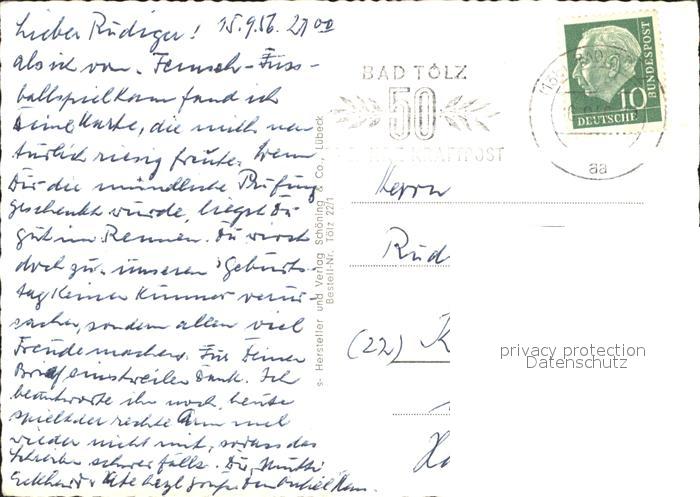 Lieber Rüdiger! 15.9.56. 21 00
als ich vom Fernseh-Fuss-
ballspiel kam fand ich
Deine Karte, die mich na-
türlich riesig freute. Wenn
Dir die mündliche Prüfung
geschenkt wurde, liegst Du
gut im Rennen. Du wirst
doch zu unserem Geburts-
tag keinen Kummer verur-
sachen, sondern allen viel
Freude machen. Für Deinen
Brief einstweilen Dank. Ich
beantworte ihn noch, heute
spielt der rechte Arm mal
wieder nicht mit, sodass das
Schreiben schwer fällt. Dir, Mutti
Eckhard u. Käte herzl. Grüße
s- Hersteller und Verlag Schöning & Co., Lübeck
Bestell-Nr. Tölz 22/1
BAD TÖLZ
50
KRAFTPOST
aa
10
DEUTSCHE
BUNDESPOST
Herrn
Rüd
(22) K
privacy protection
Datenschutz